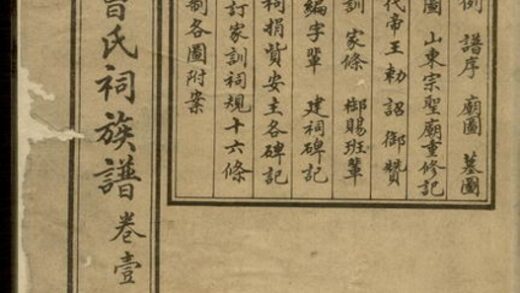 例 譜序 廟圖 墓圖
圖 山東宗聖廟重修記
代帝王勅詔御贊
訓 家條 御賜班輩
編字輩 建祠碑記
祠捐貲安主各碑記
訂家訓祠規十六條
制各圖附案
曾氏祠族譜 卷壹